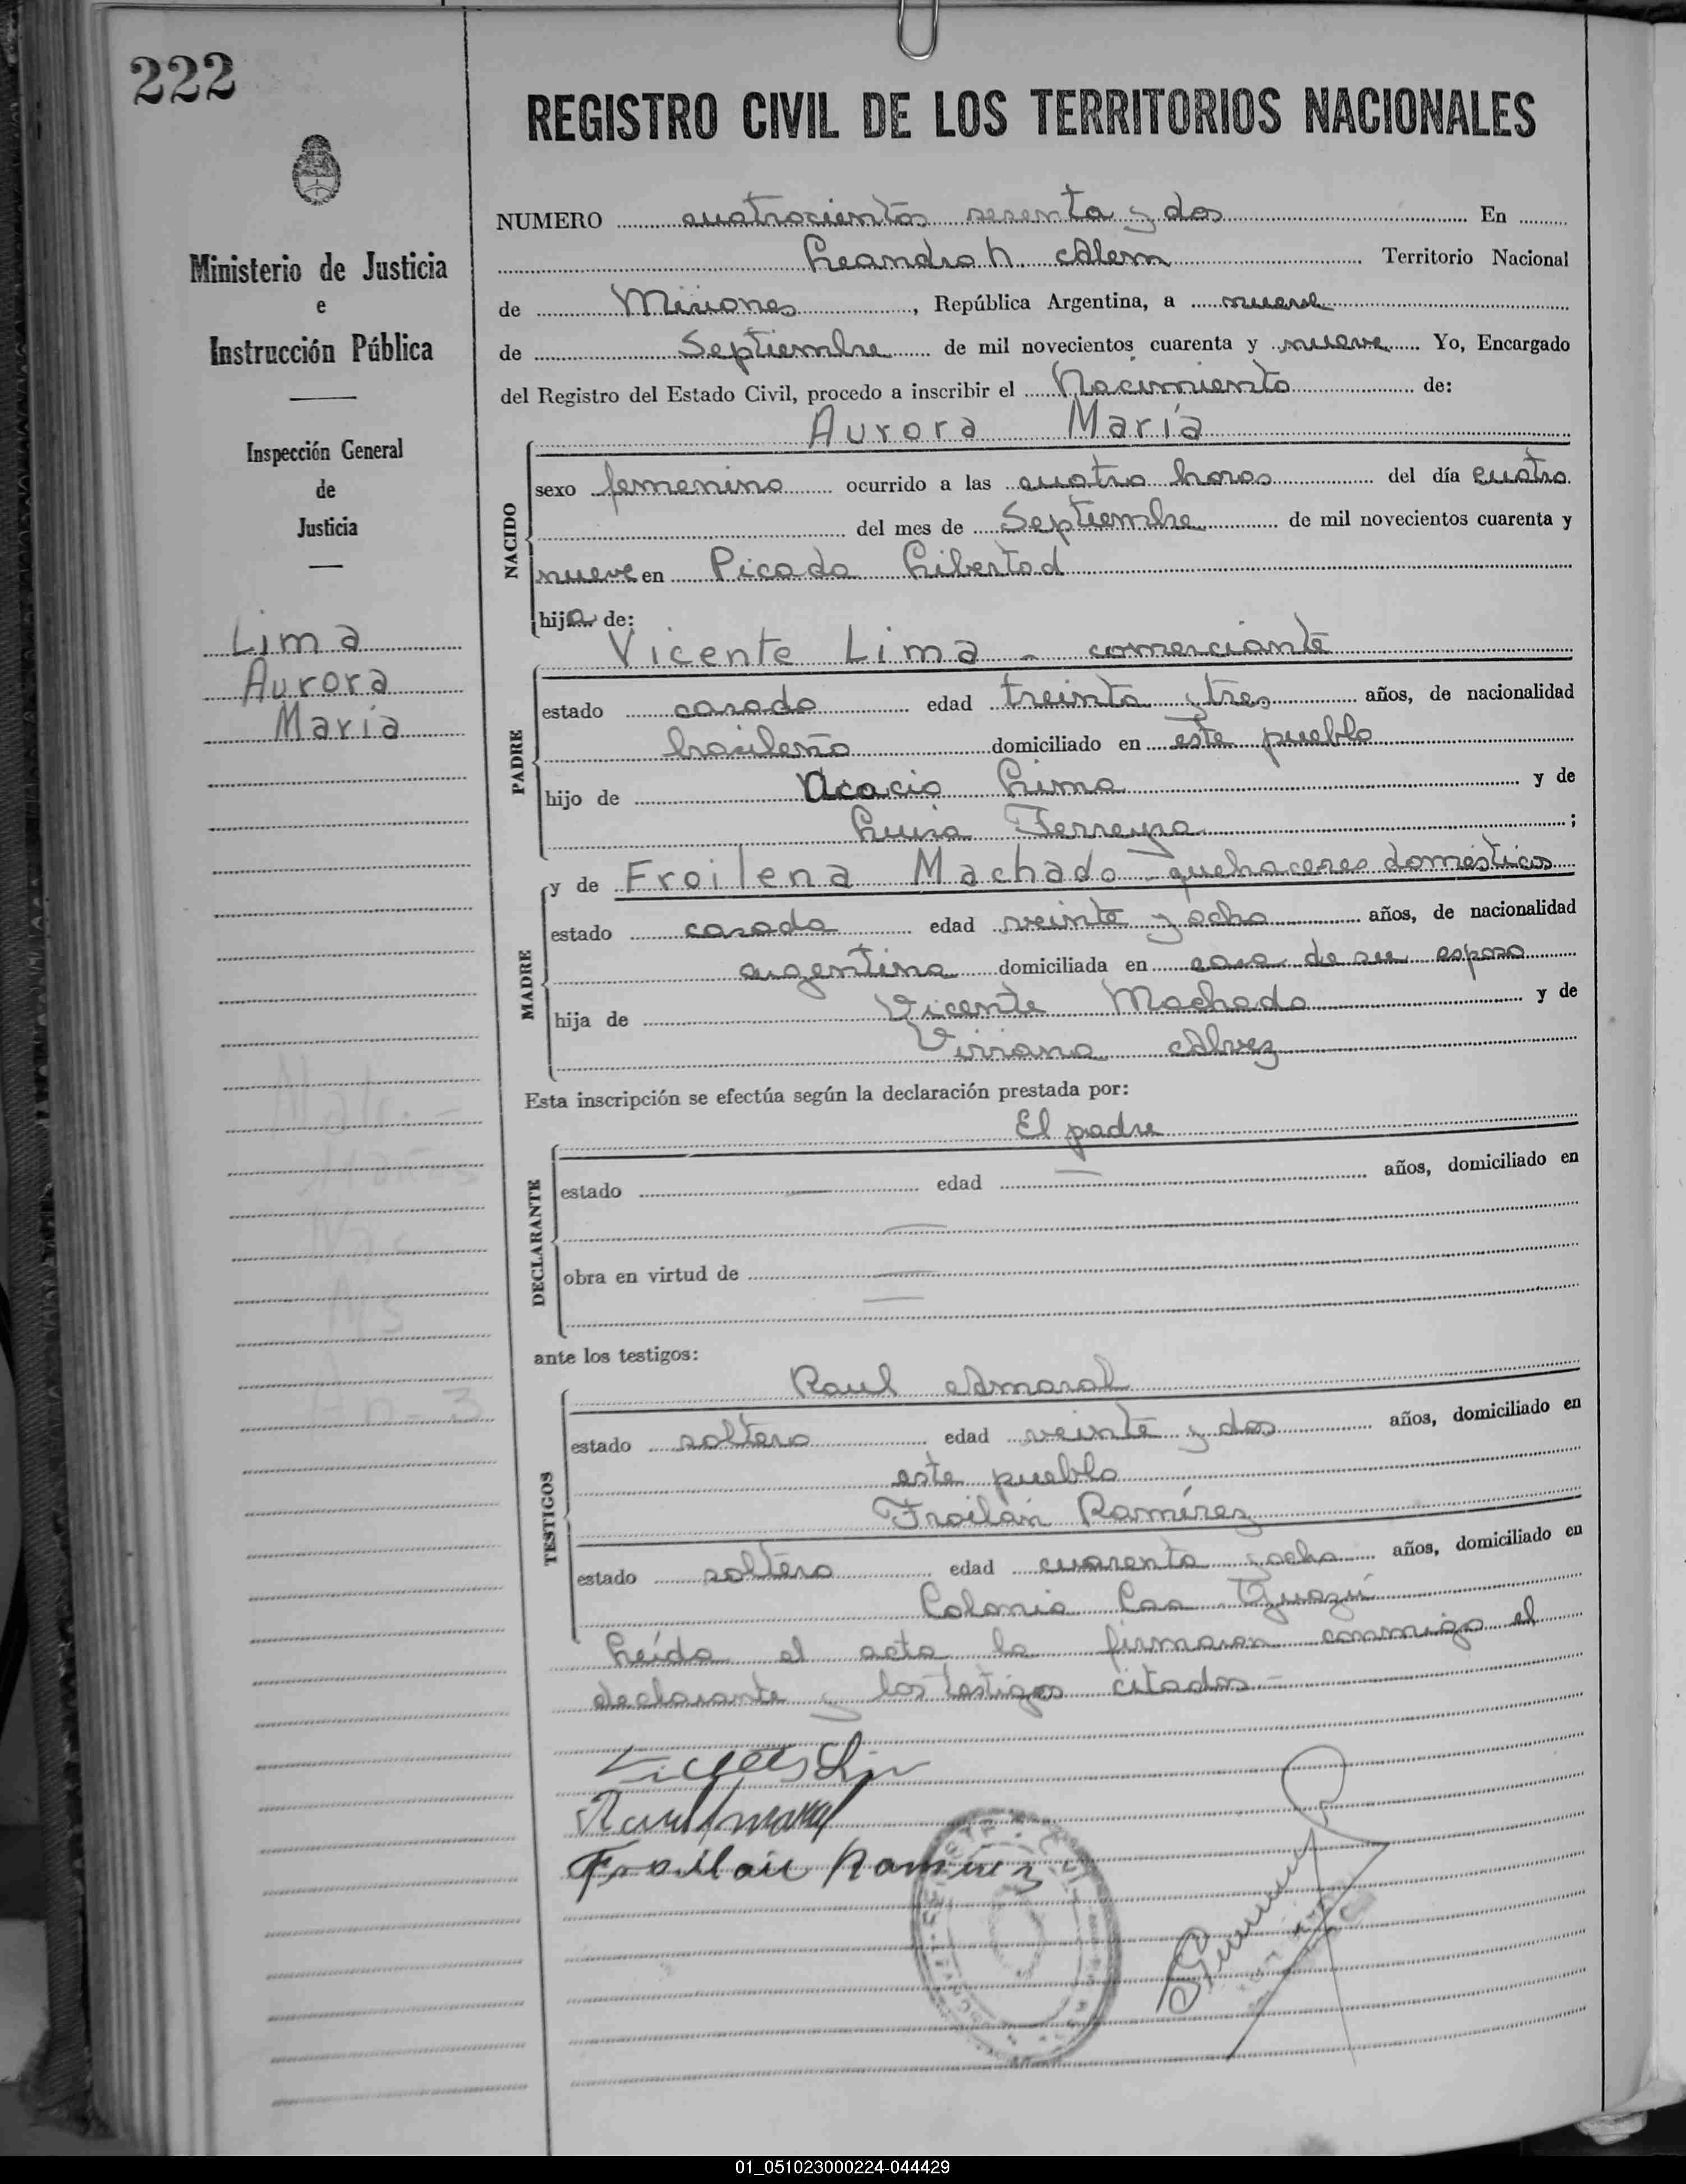 222
REGISTRO CIVIL DE LOS TERRITORIOS NACIONALES
Ministerio de Justicia
e
Instrucción Pública
Inspección General
de
Justicia
Lima
Aurora
María
NUMERO cuatrocientos sesenta y dos En
Leandro N. Alem Territorio Nacional
de Misiones, República Argentina, a nueve
de Septiembre de mil novecientos cuarenta y nueve Yo, Encargado
del Registro del Estado Civil, procedo a inscribir el Nacimiento de:
NACIDO
Aurora María
sexo femenino ocurrido a las cuatro horas del día cuatro
del mes de Septiembre de mil novecientos cuarenta y
nueve en Picada Libertad
hija de:
PADRE
Vicente Lima - comerciante
estado casado edad treinta y tres años, de nacionalidad
brasileño domiciliado en este pueblo
hijo de Acacio Lima y de
Luisa Ferreyra;
MADRE
y de Froilena Machado - quehaceres domésticos
estado casada edad veinte y ocho años, de nacionalidad
argentina domiciliada en casa de su esposo
hija de Vicente Machado y de
Viriana Alvez
Esta inscripción se efectúa según la declaración prestada por:
DECLARANTE
El padre
estado — edad — años, domiciliado en
—
obra en virtud de —
—
ante los testigos:
TESTIGOS
Raul Amaral
estado soltero edad veinte y dos años, domiciliado en
este pueblo
Froilán Ramírez
estado soltero edad cuarenta y ocho años, domiciliado en
Colonia Caa Yguazú
Leída el acta la firmaron conmigo el
declarante y los testigos citados =
Raul Amaral
Froilan Ramirez
01_051023000224-044429